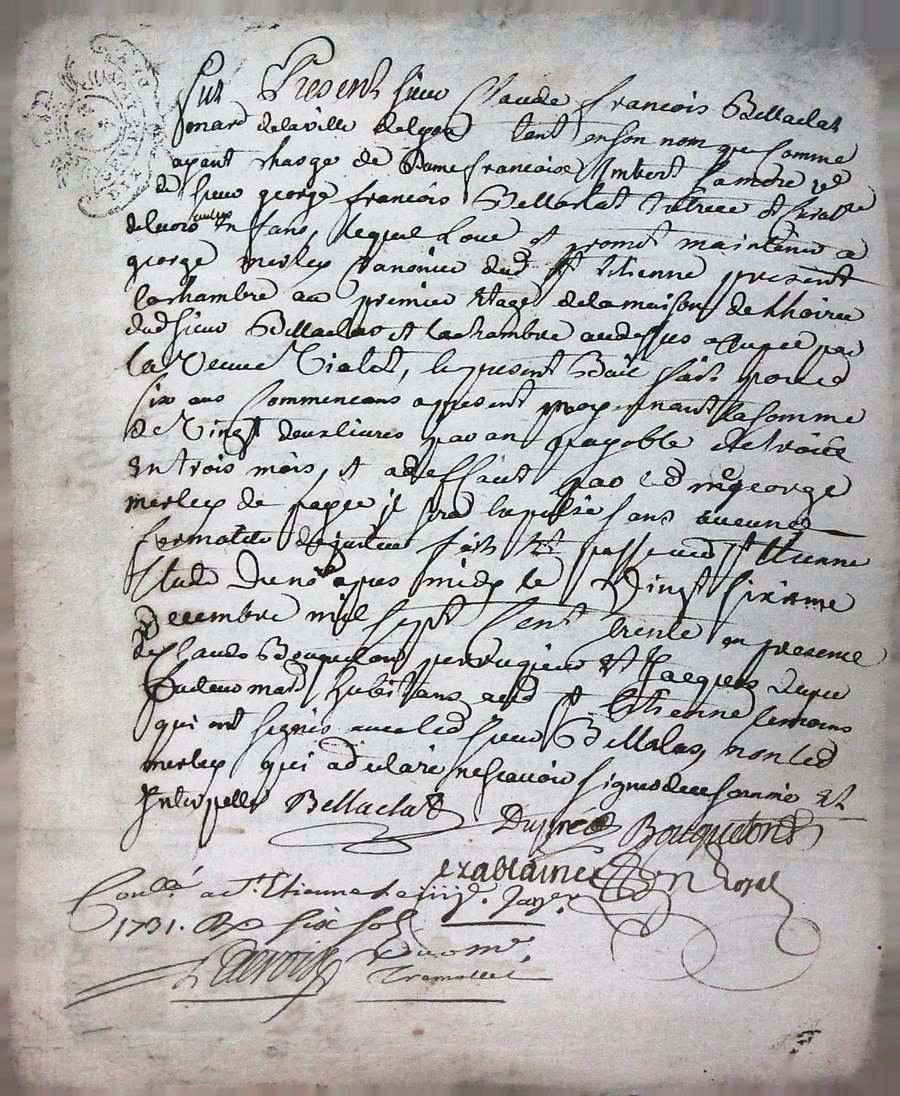 Fut Present sieur Claude francois Bellaclat
mard delaville delyon tant enson nom que Comme
ayant charge de Dame francoise Imbert sa mere
de sieur george francois Bellaclat tutrice et
deleurs enfans, lequel loue et promet maintenir a
george merley Canonier dud St Etienne present
la chambre au premier Etage de la maison de
dud sieur Bellaclat et la chambre au dessus occupee par
la Veuve Vialet, le present Bail fait pour
six ans Commencans apresent moyennant la somme
de Vingt deux livres par an payable de trois
en trois mois, et a deffaut par led george
merley de payer il sera Expulsé sans aucune
formalité de justice fait Et passé aud St Etienne
Etude du nore apres midy le Vingt sixieme
Decembre mil sept Cent trente en presence
de Claude Bouqueton perruquier Et Jacques Dupre
mard habitans aud St Etienne temoins
qui ont signés avec led sieur Bellaclat, non led
merley qui a declaré ne scavoir signer de ce sommé Et
Interpellé Bellaclat
Dupré Bouqueton
royal
Conllé a St Etienne le iiije Janer
1731. Rx six sols